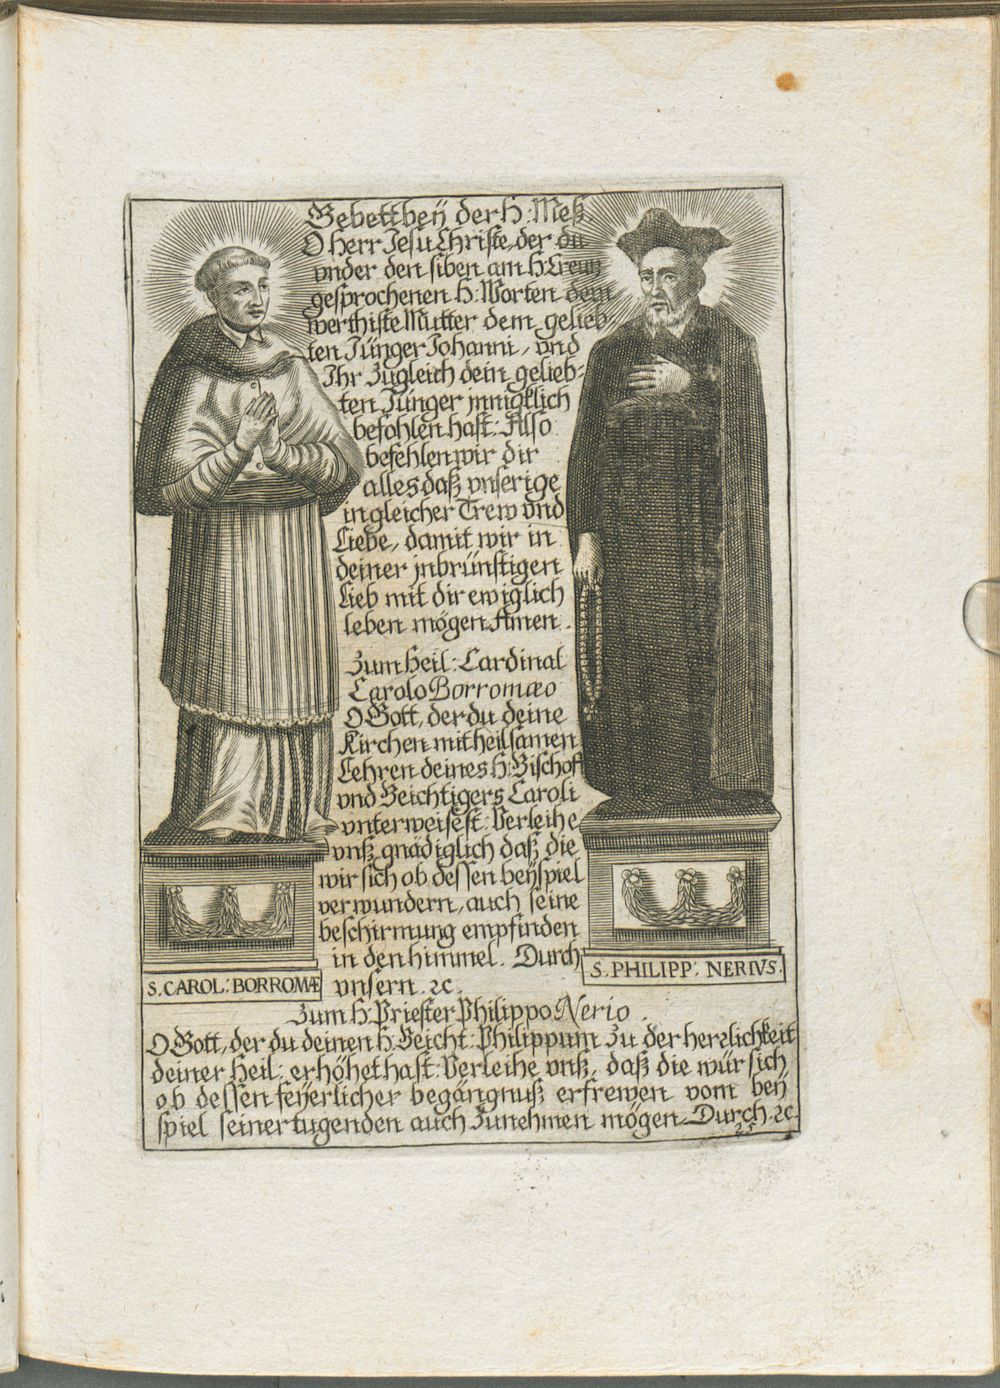 Gebett beÿ der H: Meß.
O Herr Jesu Christe, der du
vnder den siben am H Creutz
gesprochenen H: Worten dem
werthiste Mutter dem gelieb-
ten Jünger Johanni, vnd
Ihr Zugleich dein gelieb-
ten Jünger jnnigklich
befohlen hast: Also
befehlen wir dir
alles daß vnserige
in gleicher Trew vnd
Liebe, damit wir in
deiner jnbrünstigen
Lieb mit dir ewiglich
leben mögen Amen.
Zum Heil: Cardinal
Carolo Borromæo
O Gott, der du deine
Kirchen mit heilsamen
Lehren deines H: Bischof
vnd Beichtigers Caroli
vnterweisest: Verleihe
vnß gnädiglich daß die
wir sich ob dessen beÿspiel
verwundern, auch seine
beschirmung empfinden
in den himmel. Durch
vnsern. ꝛc.
S. CAROL: BORROMÆ
S. PHILIPP: NERIVS.
Zum H: Priester Philippo Nerio.
O Gott, der du deinen H: Beicht: Philippum Zu der herzlichkeit
deiner Heil: erhöhet hast: Verleihe vnß, daß die wür sich
ob dessen feÿerlicher begängnuß erfrewen vom beÿ
spiel seiner tugenden auch Zunehmen mögen. Durch. ꝛc.
25